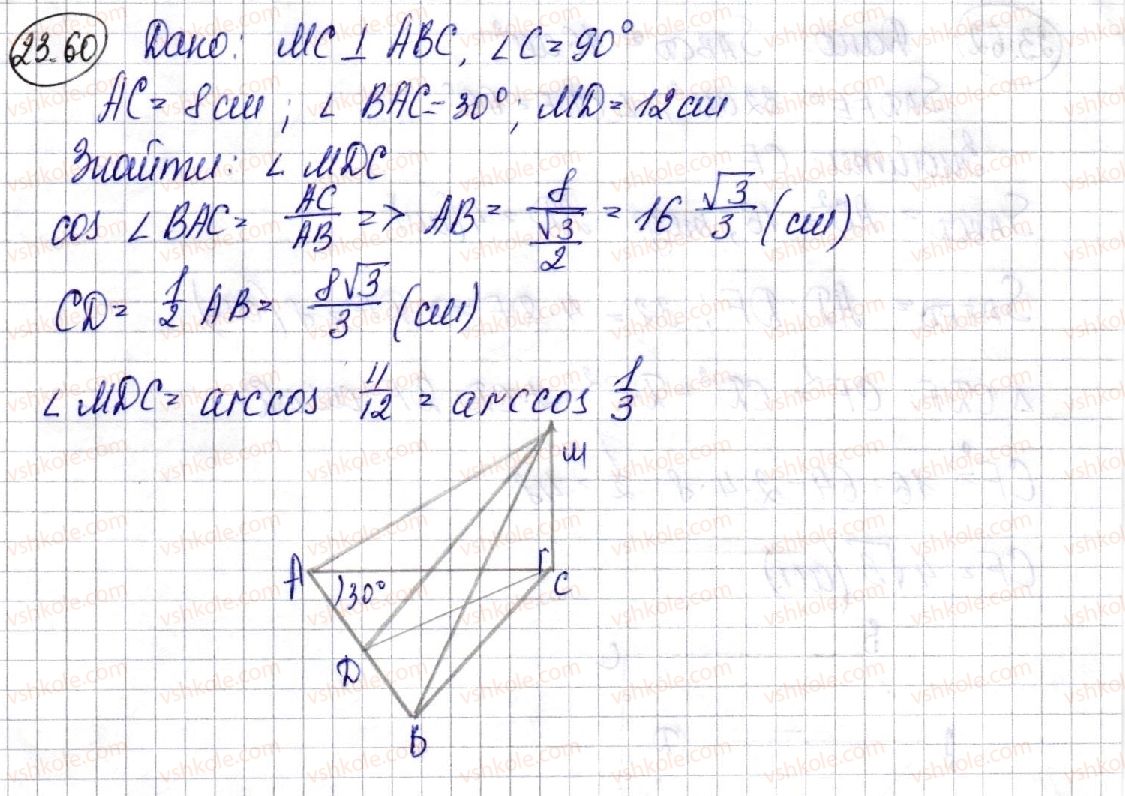 23.60 Дано: MC ⊥ ABC, ∠C = 90°
AC = 8 см; ∠ BAC = 30°; MD = 12 см
Знайти: ∠ MDC
cos ∠ BAC = AC/AB => AB = 8/(√3/2) = 16 √3/3 (см)
CD = 1/2 AB = 8√3/3 (см)
∠ MDC = arccos 4/12 = arccos 1/3
M
A
30°
C
D
B
vshkole.com